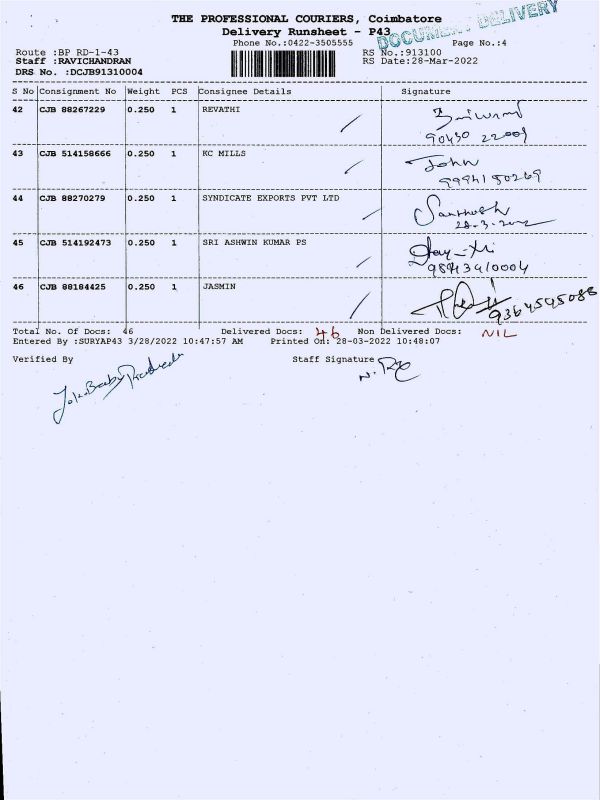 THE PROFESSIONAL COURIERS, Coimbatore
DOCUMENT DELIVERY
Delivery Runsheet - P43
Phone No.:0422-3505555 Page No.:4
Route :BP RD-1-43 RS No.:913100
Staff :RAVICHANDRAN RS Date:28-Mar-2022
DRS No. :DCJB91310004
S No Consignment No Weight PCS Consignee Details Signature
42 CJB 88267229 0.250 1 REVATHI
90430 22009
43 CJB 514158666 0.250 1 KC MILLS John
9994150269
44 CJB 88270279 0.250 1 SYNDICATE EXPORTS PVT LTD Santhosh
28-3-2022
45 CJB 514192473 0.250 1 SRI ASHWIN KUMAR PS
9843410004
46 CJB 88184425 0.250 1 JASMIN
9364595088
Total No. Of Docs: 46 Delivered Docs: 46 Non Delivered Docs: NIL
Entered By :SURYAP43 3/28/2022 10:47:57 AM Printed On: 28-03-2022 10:48:07
Verified By Staff Signature